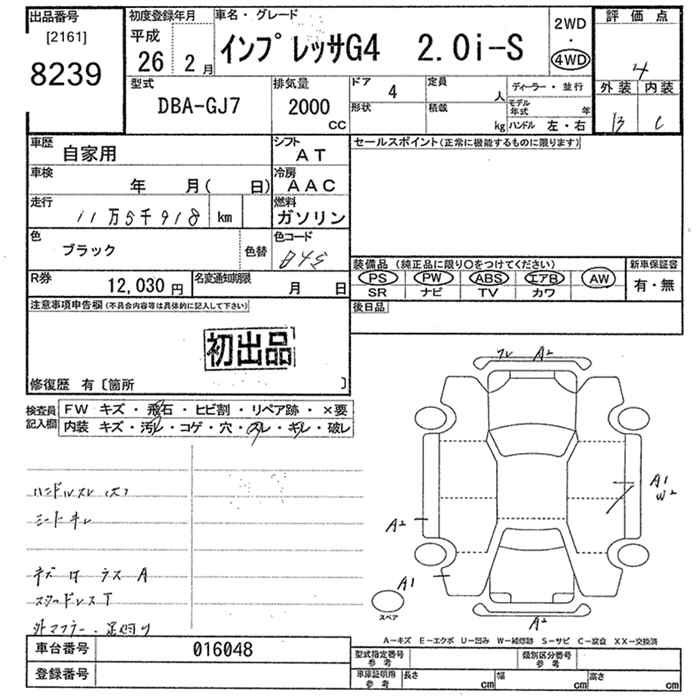 出品番号
[2161]
8239
初度登録年月
平成
26年 2月
車名・グレード
インプレッサG4 2.0i-S
2WD
・
4WD
評価点
4
外装 内装
B C
型式
DBA-GJ7
排気量
2000
CC
ドア
4
定員
人
ディーラー・並行
形状
積載
kg
モデル年式 年
ハンドル 左・右
車歴
自家用
シフト
AT
セールスポイント(正常に機能するものに限ります)
車検
年 月( 日)
冷房
AAC
走行
11万5千918 km
燃料
ガソリン
色
ブラック
色替
色コード
装備品(純正品に限り〇をつけてください)
新車保証書
PS PW ABS エアB AW
有・無
SR ナビ TV カワ
R券
12,030円
名変通知期限
月 日
後日品
注意事項申告欄(不具合内容等は具体的に記入して下さい)
初出品
修復歴 有〔箇所 〕
検査員記入欄
FW キズ・飛石・ヒビ割・リペア跡・×要
内装 キズ・汚レ・コゲ・穴・スレ・キレ・破レ
ハンドルスレ(大)
シートキレ
A2
A1
W2
A2
A1
A2
スペア
スタッドレスT
外マフラー・
A-キズ E-エクボ U-凹み W-補修跡 S-サビ C-腐食 XX-交換済
車台番号
016048
登録番号
型式指定番号
参考
類別区分番号
参考
車庫証明用
参考
長さ cm
幅 cm
高さ cm